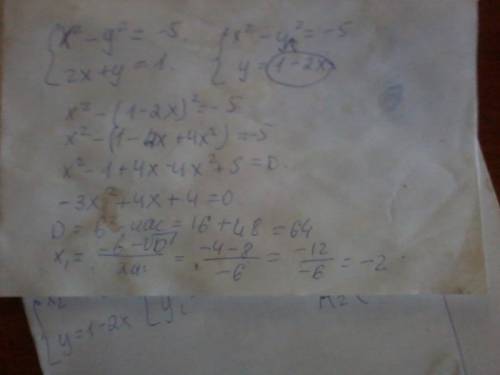 { x² - y² = -5   { x² - y² = -5
{ 2x + y = 1.   { y = 1 - 2x
x² - (1 - 2x)² = -5
x² - (1 - 4x + 4x²) = -5
x² - 1 + 4x - 4x² + 5 = 0.
-3x² + 4x + 4 = 0
D = b² - 4ac = 16 + 48 = 64
x₁ = (-b - √D)/2a = (-4 - 8)/-6 = -12/-6 = -2
{ y = 1 - 2x